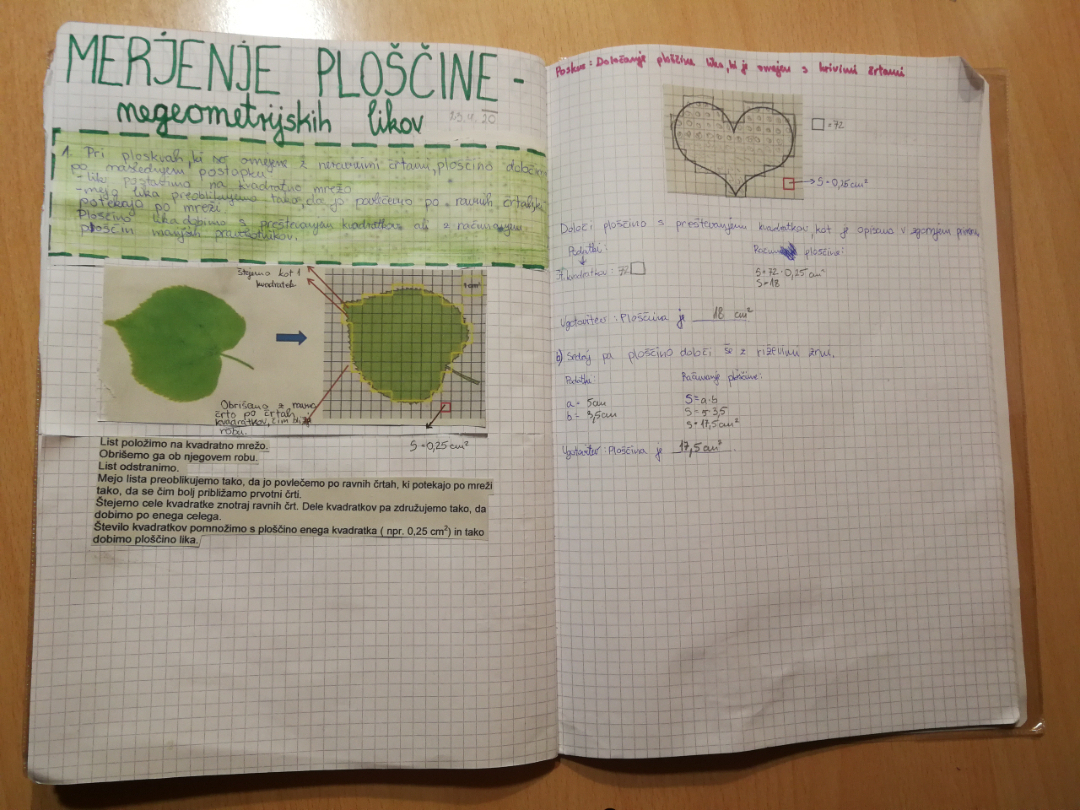 MERJENJE PLOŠČINE -
negeometrijskih likov
1. Pri ploskvah, ki so omejene z neravnimi črtami, ploščino določimo
po naslednjem postopku:
- lik postavimo na kvadratno mrežo
- mejo lika preoblikujemo tako, da jo povlečemo po ravnih črtah, ki
potekajo po mreži.
Ploščino lika dobimo s preštevanjem kvadratkov ali z računanjem
ploščin manjših pravokotnikov.
Štejemo kot 1
kvadratek
1 cm²
Obrišemo z ravno
črto po črtah
kvadratkov, čim bližje
robu.
S = 0,25 cm²
List položimo na kvadratno mrežo.
Obrišemo ga ob njegovem robu.
List odstranimo.
Mejo lista preoblikujemo tako, da jo povlečemo po ravnih črtah, ki potekajo po mreži
tako, da se čim bolj približamo prvotni črti.
Štejemo cele kvadratke znotraj ravnih črt. Dele kvadratkov pa združujemo tako, da
dobimo po enega celega.
Število kvadratkov pomnožimo s ploščino enega kvadratka ( npr. 0,25 cm²) in tako
dobimo ploščino lika.
Poskus: Določanje ploščine lika, ki je omejen s krivimi črtami
= 72
S = 0,25 cm²
Določi ploščino s preštevanjem kvadratkov, kot je opisano v zgornjem primeru.
Podatki:
Št. kvadratkov: 72
ploščine:
S = 72 · 0,25 cm²
S = 18
Ugotovitev: Ploščina je 18 cm²
b) Sedaj pa ploščino določi še z riževimi zrni.
Podatki:
a = 5cm
b = 3,5cm
Računanje ploščine:
S = a · b
S = 5 · 3,5
S = 17,5 cm²
Ugotovitev: Ploščina je 17,5 cm².